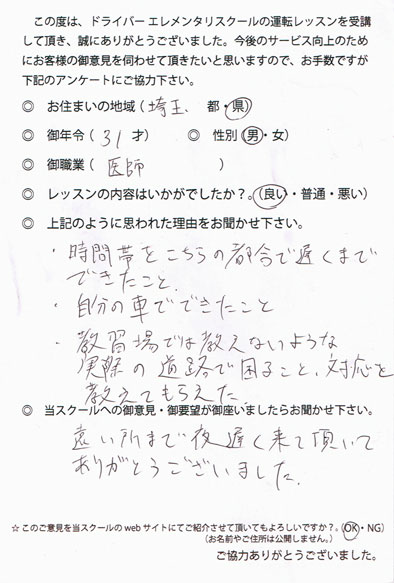 この度は、ドライバー エレメンタリスクールの運転レッスンを受講
して頂き、誠にありがとうございました。今後のサービス向上のため
にお客様の御意見を伺わせて頂きたいと思いますので、お手数ですが
下記のアンケートにご協力下さい。
◎ お住まいの地域(埼玉、 都・県)
◎ 御年令(31 才) ◎ 性別(男・女)
◎ 御職業(医師 )
◎ レッスンの内容はいかがでしたか?。(良い・普通・悪い)
◎ 上記のように思われた理由をお聞かせ下さい。
・時間帯をこちらの都合で遅くまで
できたこと.
・自分の車でできたこと
・教習場では教えないような
実際の道路で困ること、対応を
教えてもらえた.
◎ 当スクールへの御意見・御要望が御座いましたらお聞かせ下さい。
遠い所まで夜遅く来て頂いて
ありがとうございました.
☆このご意見を当スクールの web サイトにてご紹介させて頂いてもよろしいですか?。(OK・NG)
(お名前やご住所は公開しません。)
ご協力ありがとうございました。